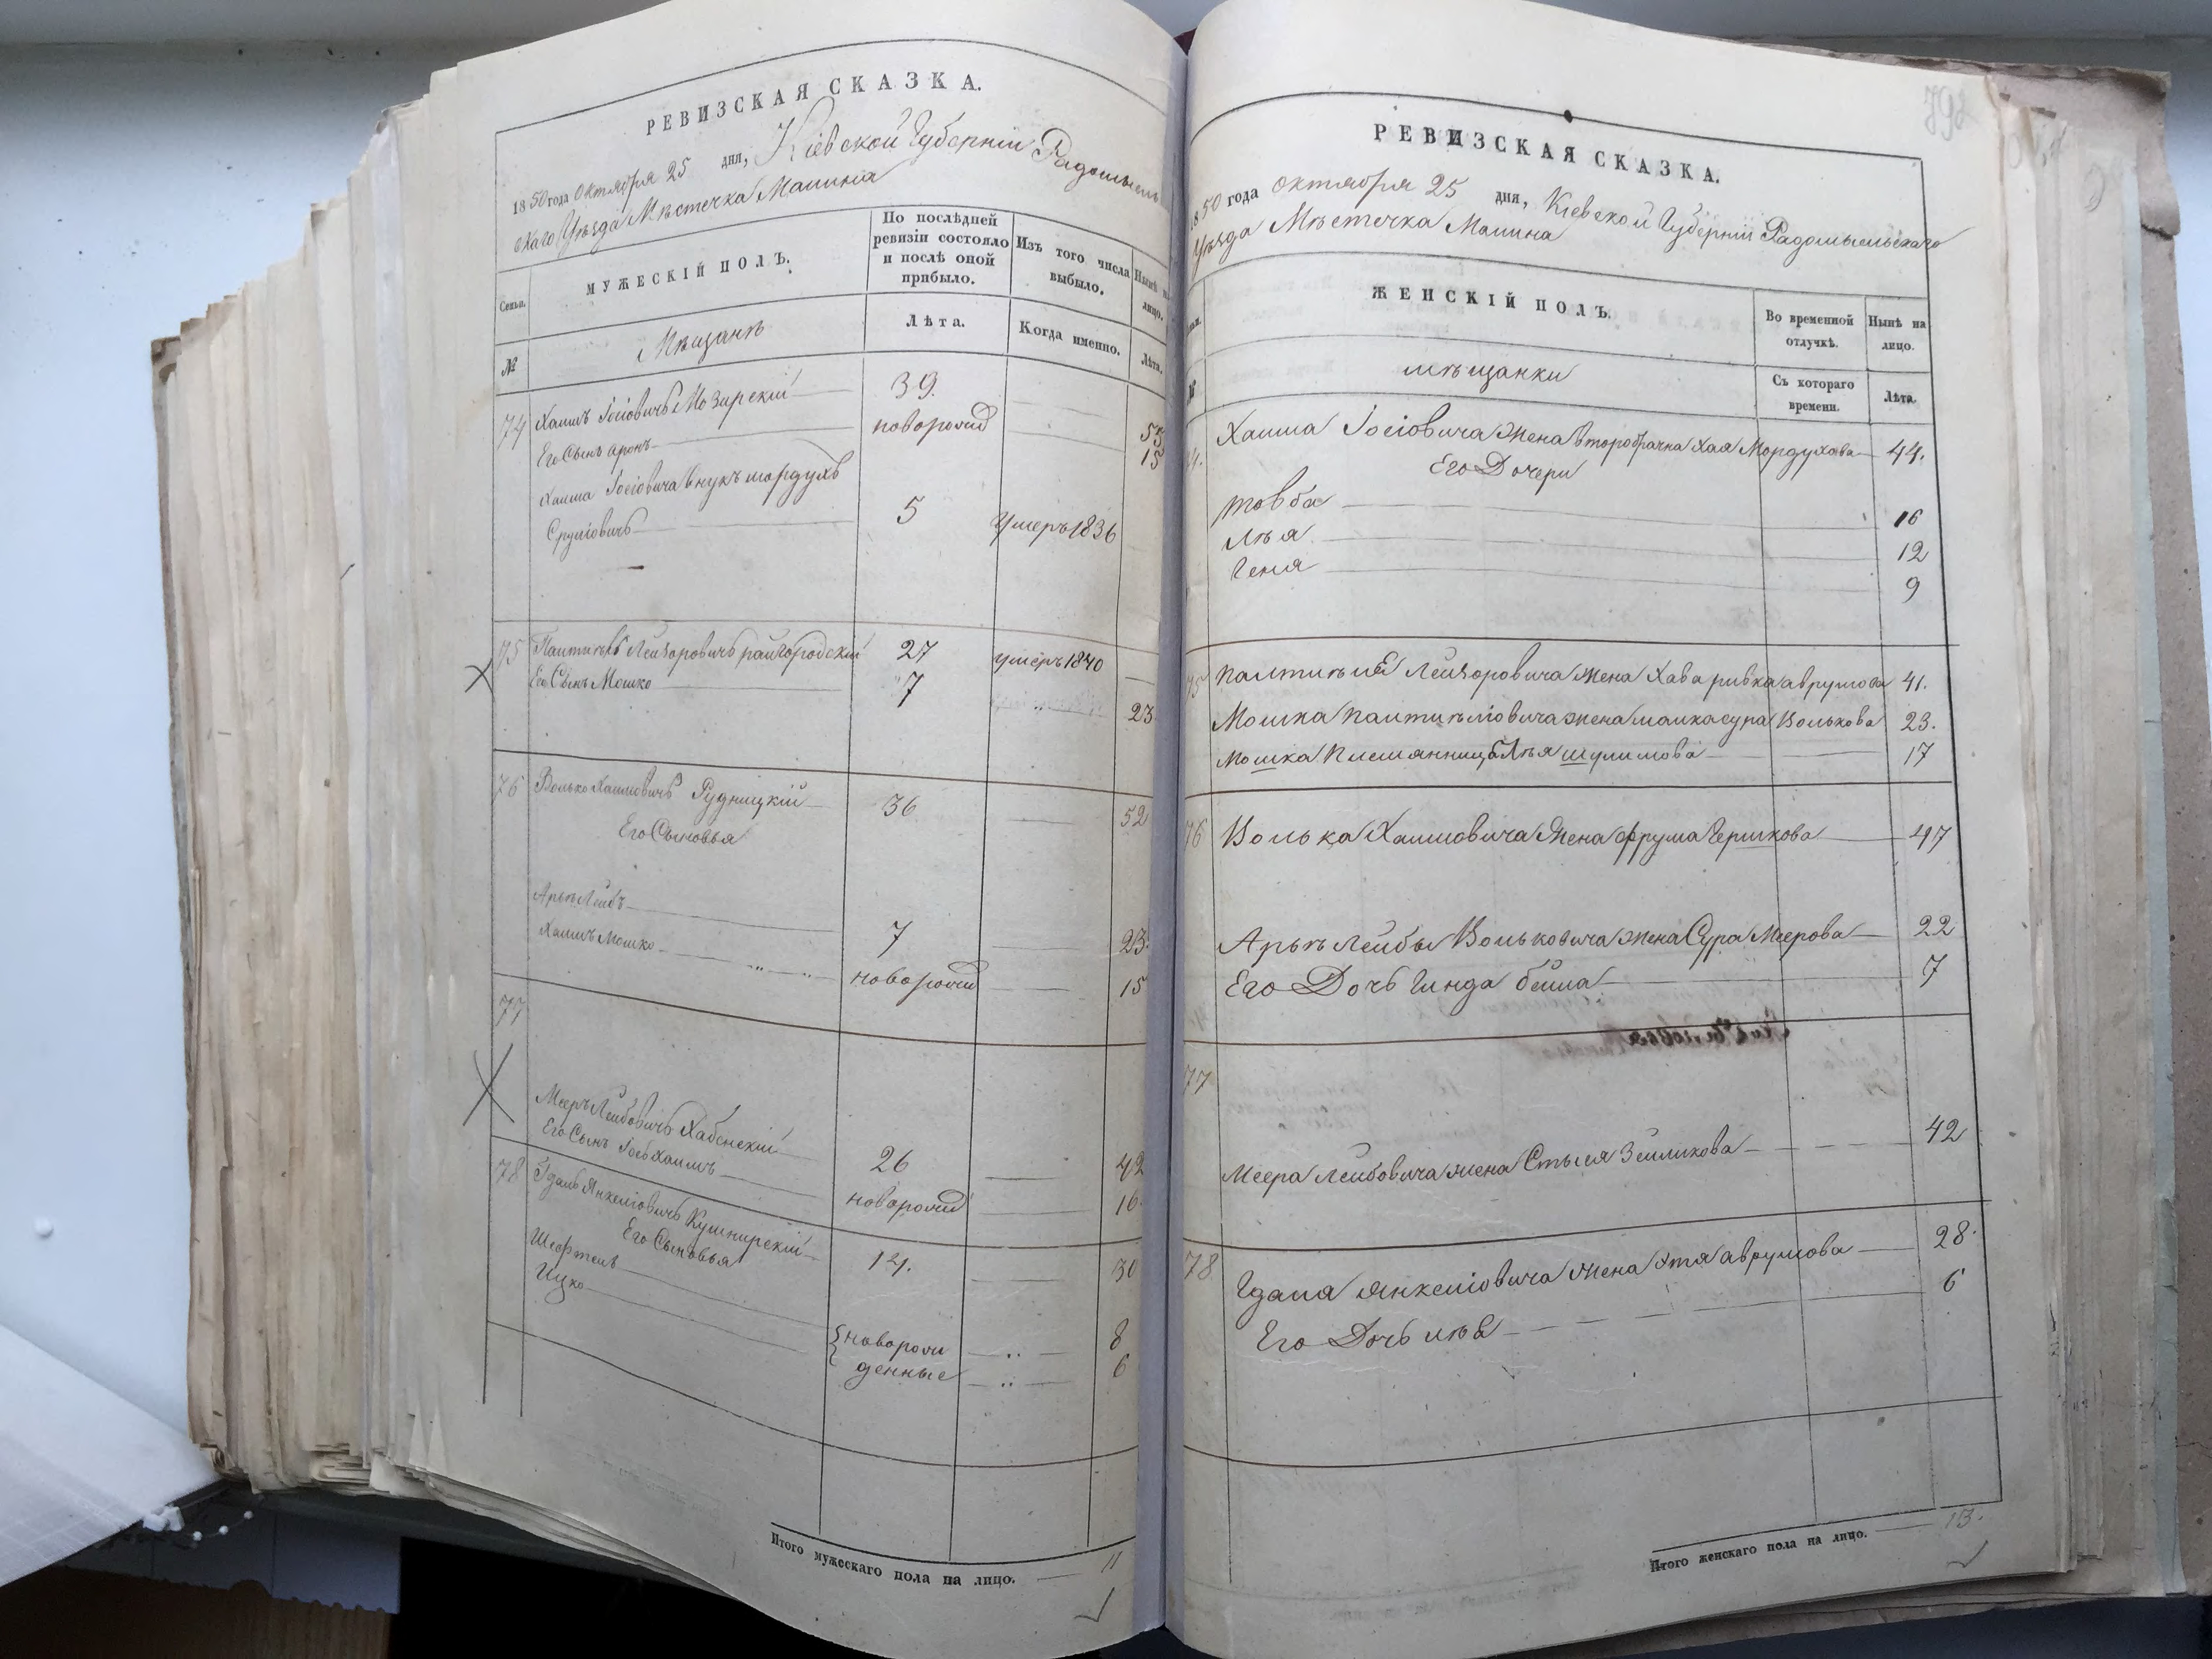 РЕВИЗСКАЯ СКАЗКА.
1850 года Октября 25 дня, Кіевской Губерніи Радомысль
скаго Уѣзда Мѣстечка Малина
Семьи.
МУЖЕСКІЙ ПОЛЪ.
По послѣдней ревизіи состояло и послѣ оной прибыло.
Изъ того числа выбыло.
Нынѣ на лицо.
№
Мѣщанѣ
Лѣта.
Когда именно.
Лѣта.
74 Хаимъ Іосіовичъ Мозирскій 39. 55
Его Сынъ Аронъ новорожд 15
Хаима Іосіовича внукъ мордухъ
Сруліовичъ 5 умеръ 1836
75 Палтіель Лейзоровичъ райгородскій 27 умеръ 1840
Его Сынъ Мошко 7 23
76 Волько Хаимовичъ Рудницкій 36 52
Его Сыновья
Арья Лейбъ 7 23
Хаимъ Мошко новорожд 15
77
Мееръ Лейбовичъ Хабенскій 26 42
Его Сынъ Іось Хаимъ новорожд 16
78 Гдаль Янкеліовичъ Кушнирскій 14. 30
Его Сыновья
Шефтель {новорож 8
Ицко денные 6
Итого мужескаго пола на лицо. 11
792
РЕВИЗСКАЯ СКАЗКА.
1850 года октября 25 дня, Кіевской Губерніи Радомысльскаго
Уѣзда Мѣстечка Малина
ЖЕНСКІЙ ПОЛЪ.
Во временной отлучкѣ.
Нынѣ на лицо.
№
мѣщанки
Съ котораго времени.
Лѣта.
Хаима Іосіовича Жена второбрачна Хая Мордухова 44.
Его Дочери
товба 16
Лѣя 12
Геня 9
75 Лейзоровича жена Хава ривка аврумова 41.
Мошка палтиеліовича жена малка сура Волькова 23.
Мошка Племянница Лѣя шулимова 17
76 Волька Хаимовича Жена фрума Гершкова 47
Арья Лейбы Вольковича жена Сура Меерова 22
Его Дочь Гинда бейла 7
77
Меера Лейбовича жена Стыся Зейликова 42
78 Гдаля Янкеліовича жена Этя аврумова 28.
Его Дочь лѣя 6
Итого женскаго пола на лицо. 13.